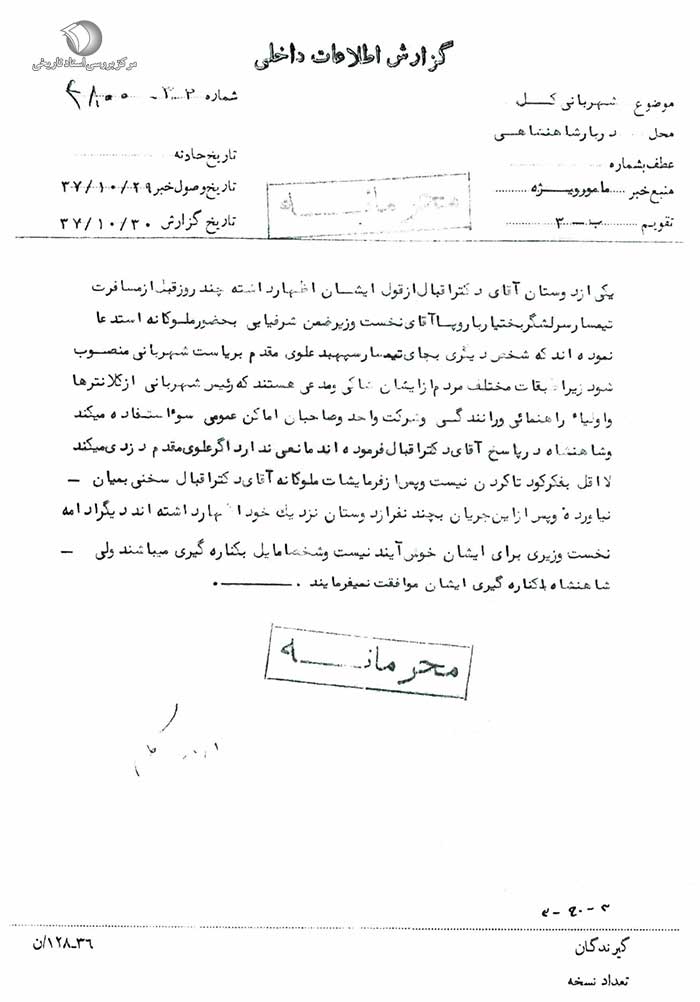 مرکز بررسی اسناد تاریخی
گزارش اطلاعات داخلی
موضوع شهربانی کل
شماره
محل دربار شاهنشاهی
عطف بشماره
تاریخ حادثه
منبع خبر مامور ویژه
تاریخ وصول خبر ۳۷/۱۰/۲۹
تقویم ب-۳
تاریخ گزارش ۳۷/۱۰/۳۰
محرمانه
یکی از دوستان آقای دکتر اقبال از قول ایشان اظهار داشته چند روز قبل از مسافرت
تیمسار سرلشگر بختیار باروپا آقای نخست وزیر ضمن شرفیابی بحضور ملوکانه استدعا
نموده اند که شخص دیگری بجای تیمسار سپهبد علوی مقدم بریاست شهربانی منصوب
شود زیرا طبقات مختلف مردم از ایشان شاکی و مدعی هستند که رئیس شهربانی از کلانتریها
و اولیاء راهنمائی و رانندگی و شرکت واحد و صاحبان اماکن عمومی سوء استفاده میکند
و شاهنشاه در پاسخ آقای دکتر اقبال فرموده اند مانعی ندارد اگر علوی مقدم دزدی میکند
لااقل بفکر کودتا کردن نیست و پس از فرمایشات ملوکانه آقای دکتر اقبال سخنی بمیان –
نیاورده و پس از این جریان بچند نفر از دوستان نزدیك خود اظهار داشته اند دیگر ادامه
نخست وزیری برای ایشان خوش آیند نیست و شخصا مایل بکناره گیری میباشند ولی –
شاهنشاه با کناره گیری ایشان موافقت نمیفرمایند .
محرمانه
گیرندگان
۳۶-۱۲۸/ن
تعداد نسخه